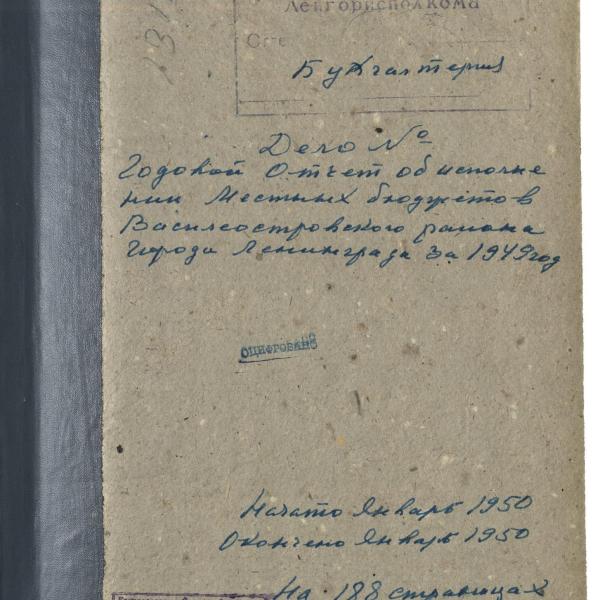 Ленгорисполкома
Бухгалтерия
Дело №
Годовой Отчет об исполне
нии Местных бюджетов
Василеостровского района
города Ленинграда за 1949 год
ОЦИФРОВАНО
Начато Январь 1950
Окончено Январь 1950
На 188 страницах